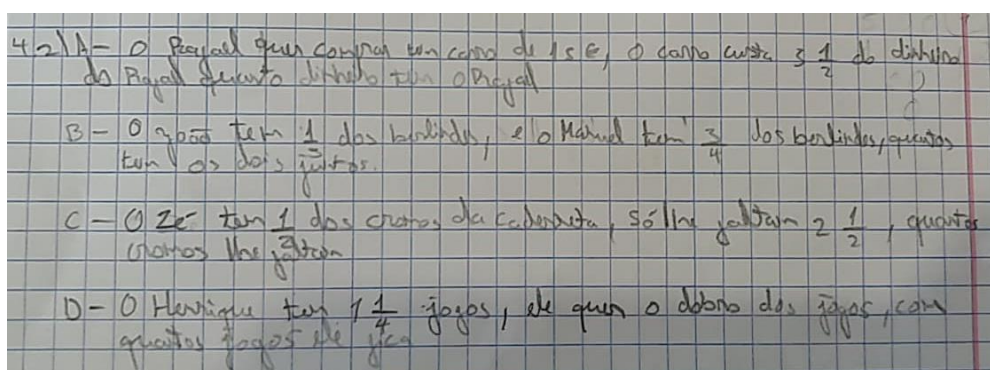 4.2) A - O Rafael quer comprar um carro de 15 €, o carro custa 3 1/2 do dinheiro
do Rafael quanto dinheiro tem o Rafael
B - O João tem 1/2 dos berlindes, e o Manuel tem 3/4 dos berlindes, quantos
tem os dois juntos.
C - O Zé tem 1/2 dos cromos da caderneta, só lhe faltam 2 1/2, quantos
cromos lhe faltam
D - O Henrique tem 1 1/4 jogos, ele quer o dobro dos jogos, com
quantos jogos ele fica